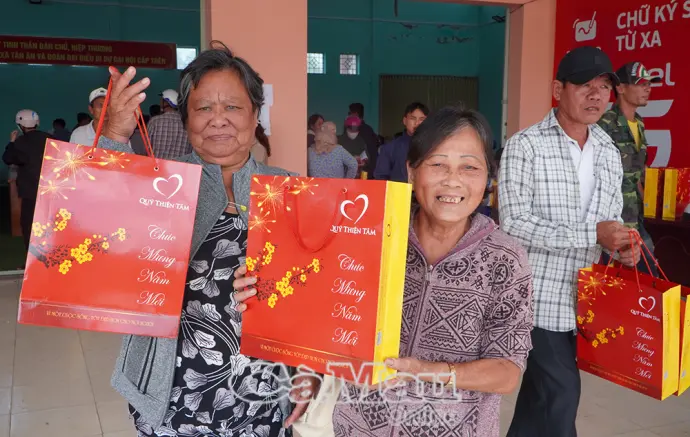 TINH THẦN DÂN CHỦ, HIỆP THƯƠNG
XÃ TÂN ÂN VÀ ĐOÀN ĐẠI BIỂU DỰ ĐẠI HỘI CẤP TRÊN
CHỮ KÝ S
TỪ XA
QUỸ THIỆN TÂM
Chúc
Mừng
Năm
Mới
VÌ MỘT CUỘC SỐNG TỐT ĐẸP CHO NGƯỜI VIỆT
QUỸ THIỆN TÂM
Chúc
Mừng
Năm
Mới
QUỸ THIỆN TÂM
Chúc
Mừng
Năm
Mới
Cà Mau
Online